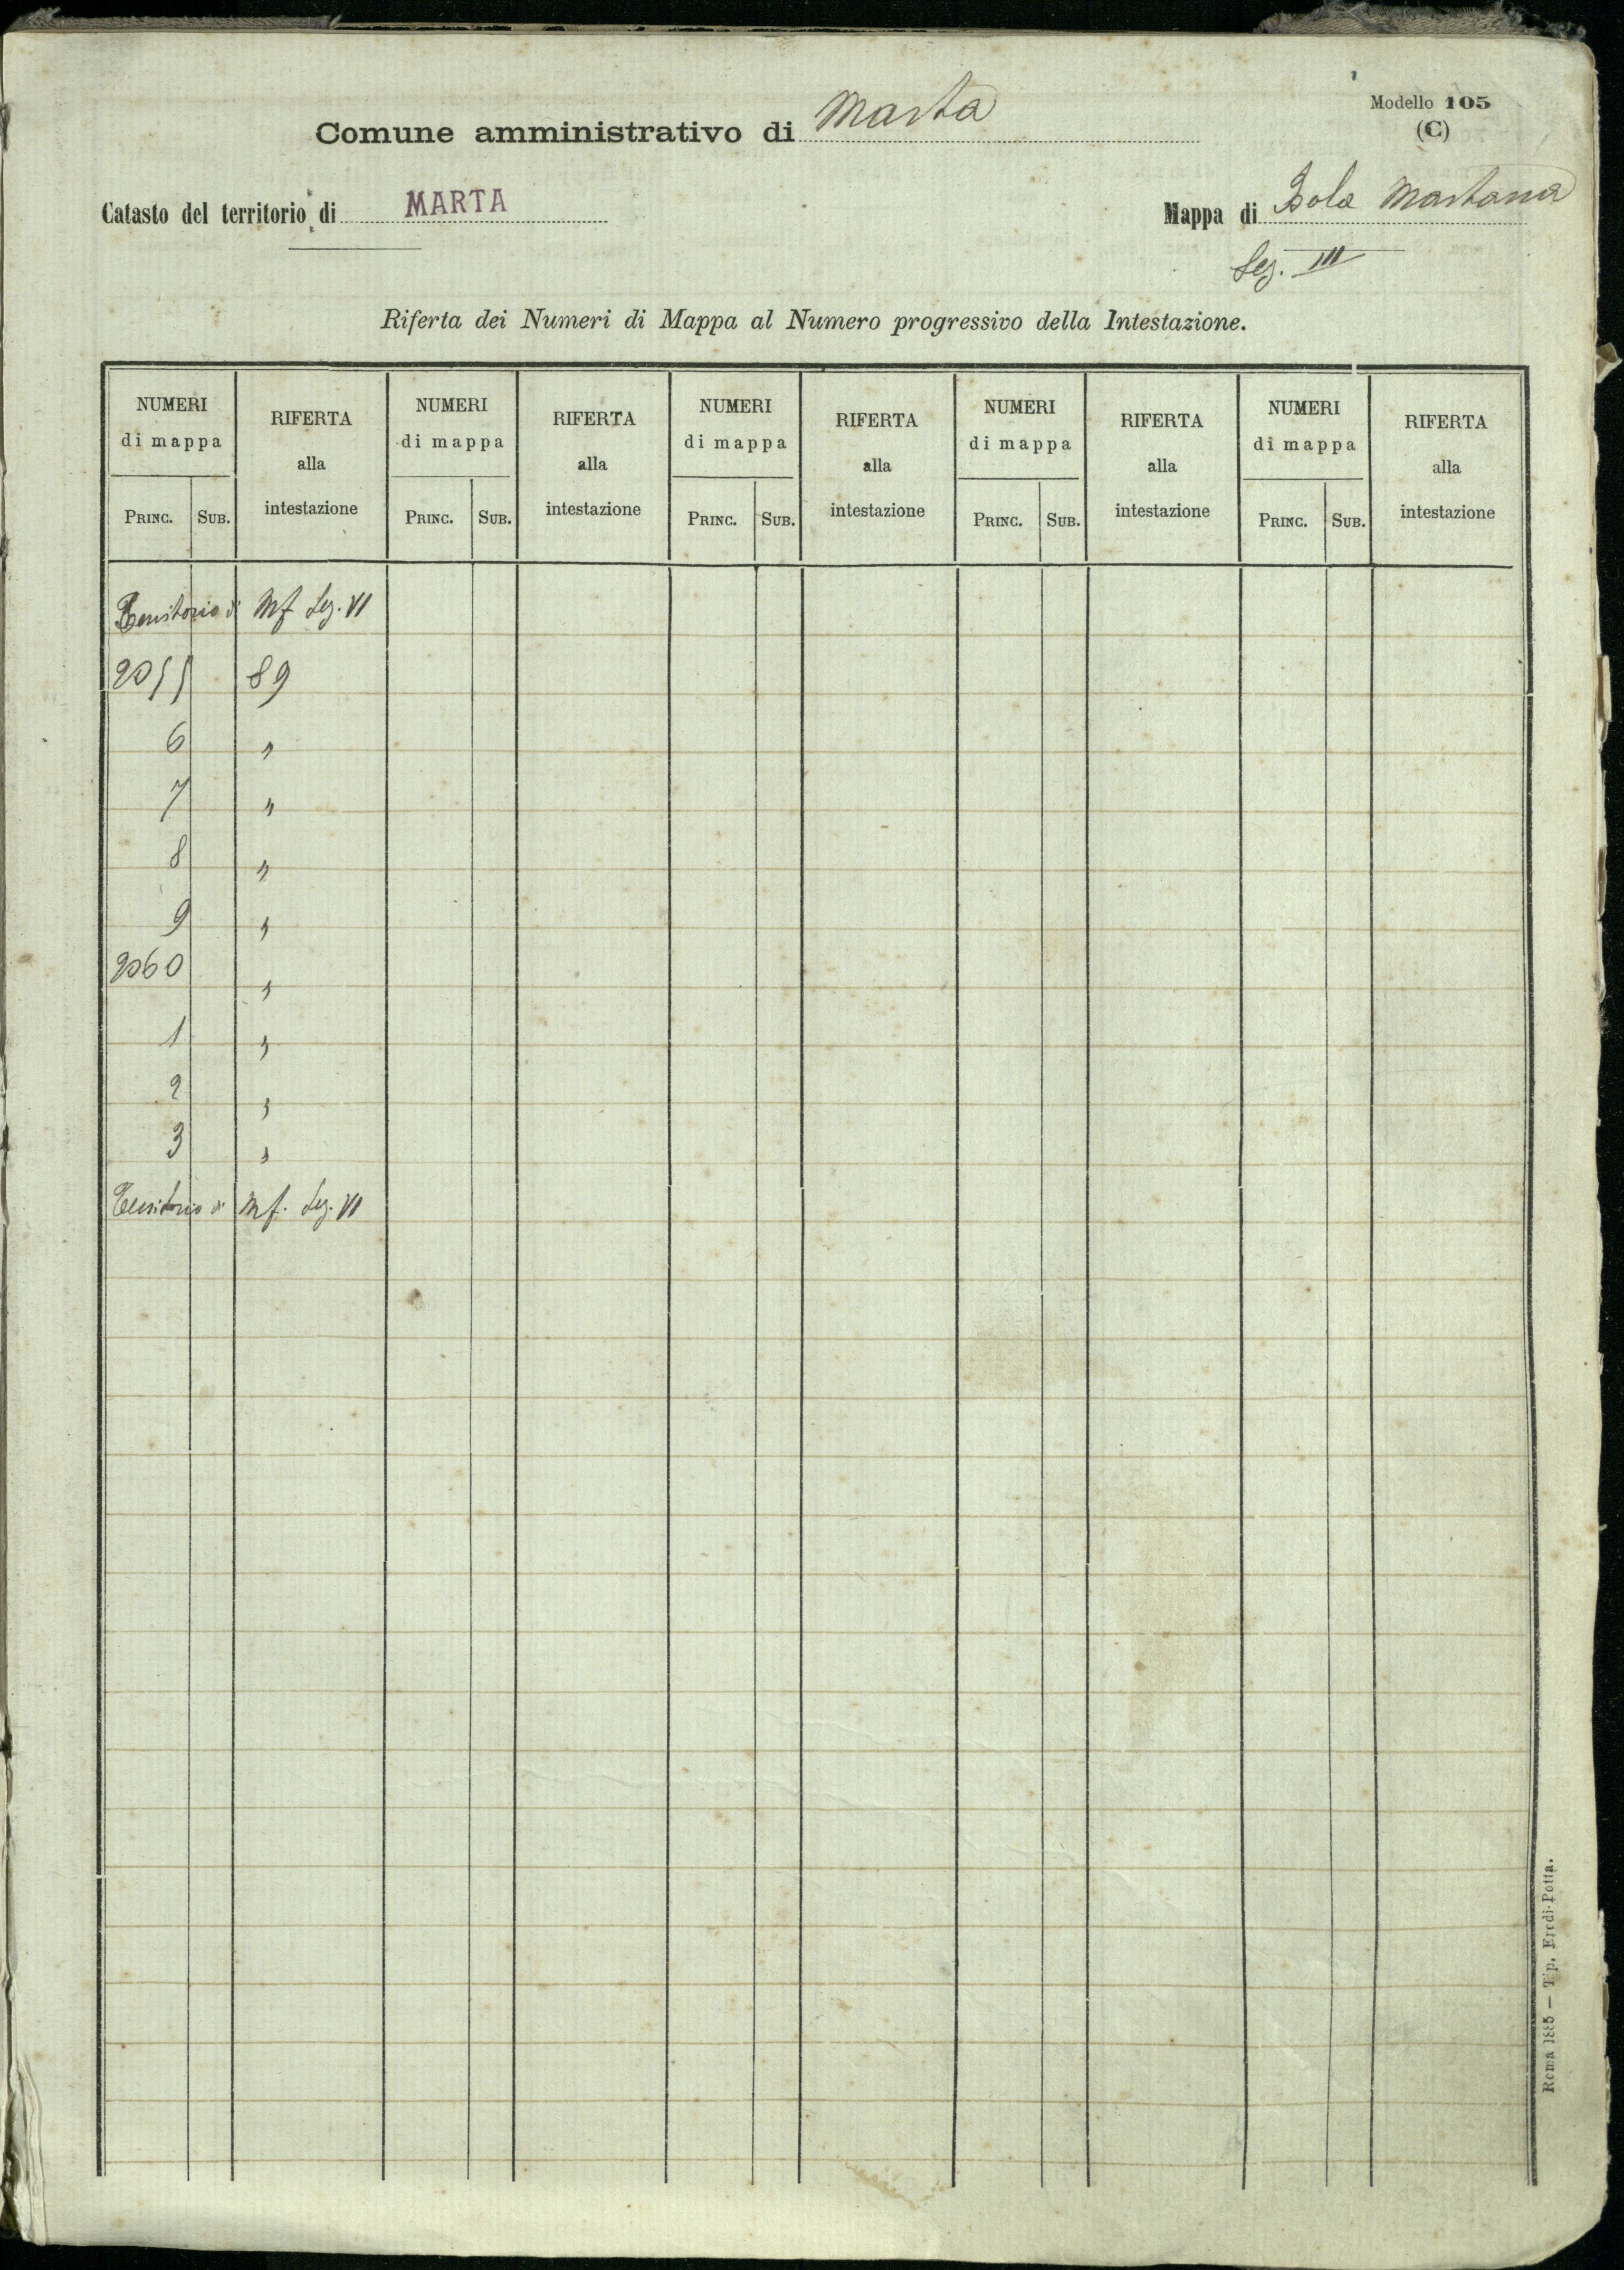 Modello 105
(C)
Comune amministrativo di Marta
Catasto del territorio di MARTA
Mappa di Isola Martana
Sez. III
Riferta dei Numeri di Mappa al Numero progressivo della Intestazione.
NUMERI di mappa RIFERTA alla intestazione NUMERI di mappa RIFERTA alla intestazione NUMERI di mappa RIFERTA alla intestazione NUMERI di mappa RIFERTA alla intestazione NUMERI di mappa RIFERTA alla intestazione
PRINC. SUB. PRINC. SUB. PRINC. SUB. PRINC. SUB. PRINC. SUB.
Territorio di Mf Sez. VI
2055 89
6 "
7 "
8 "
9 "
2060 "
1 "
2 "
3 "
Territorio di Mf. Sez. VI
Roma 1885 — Tip. Eredi-Botta.